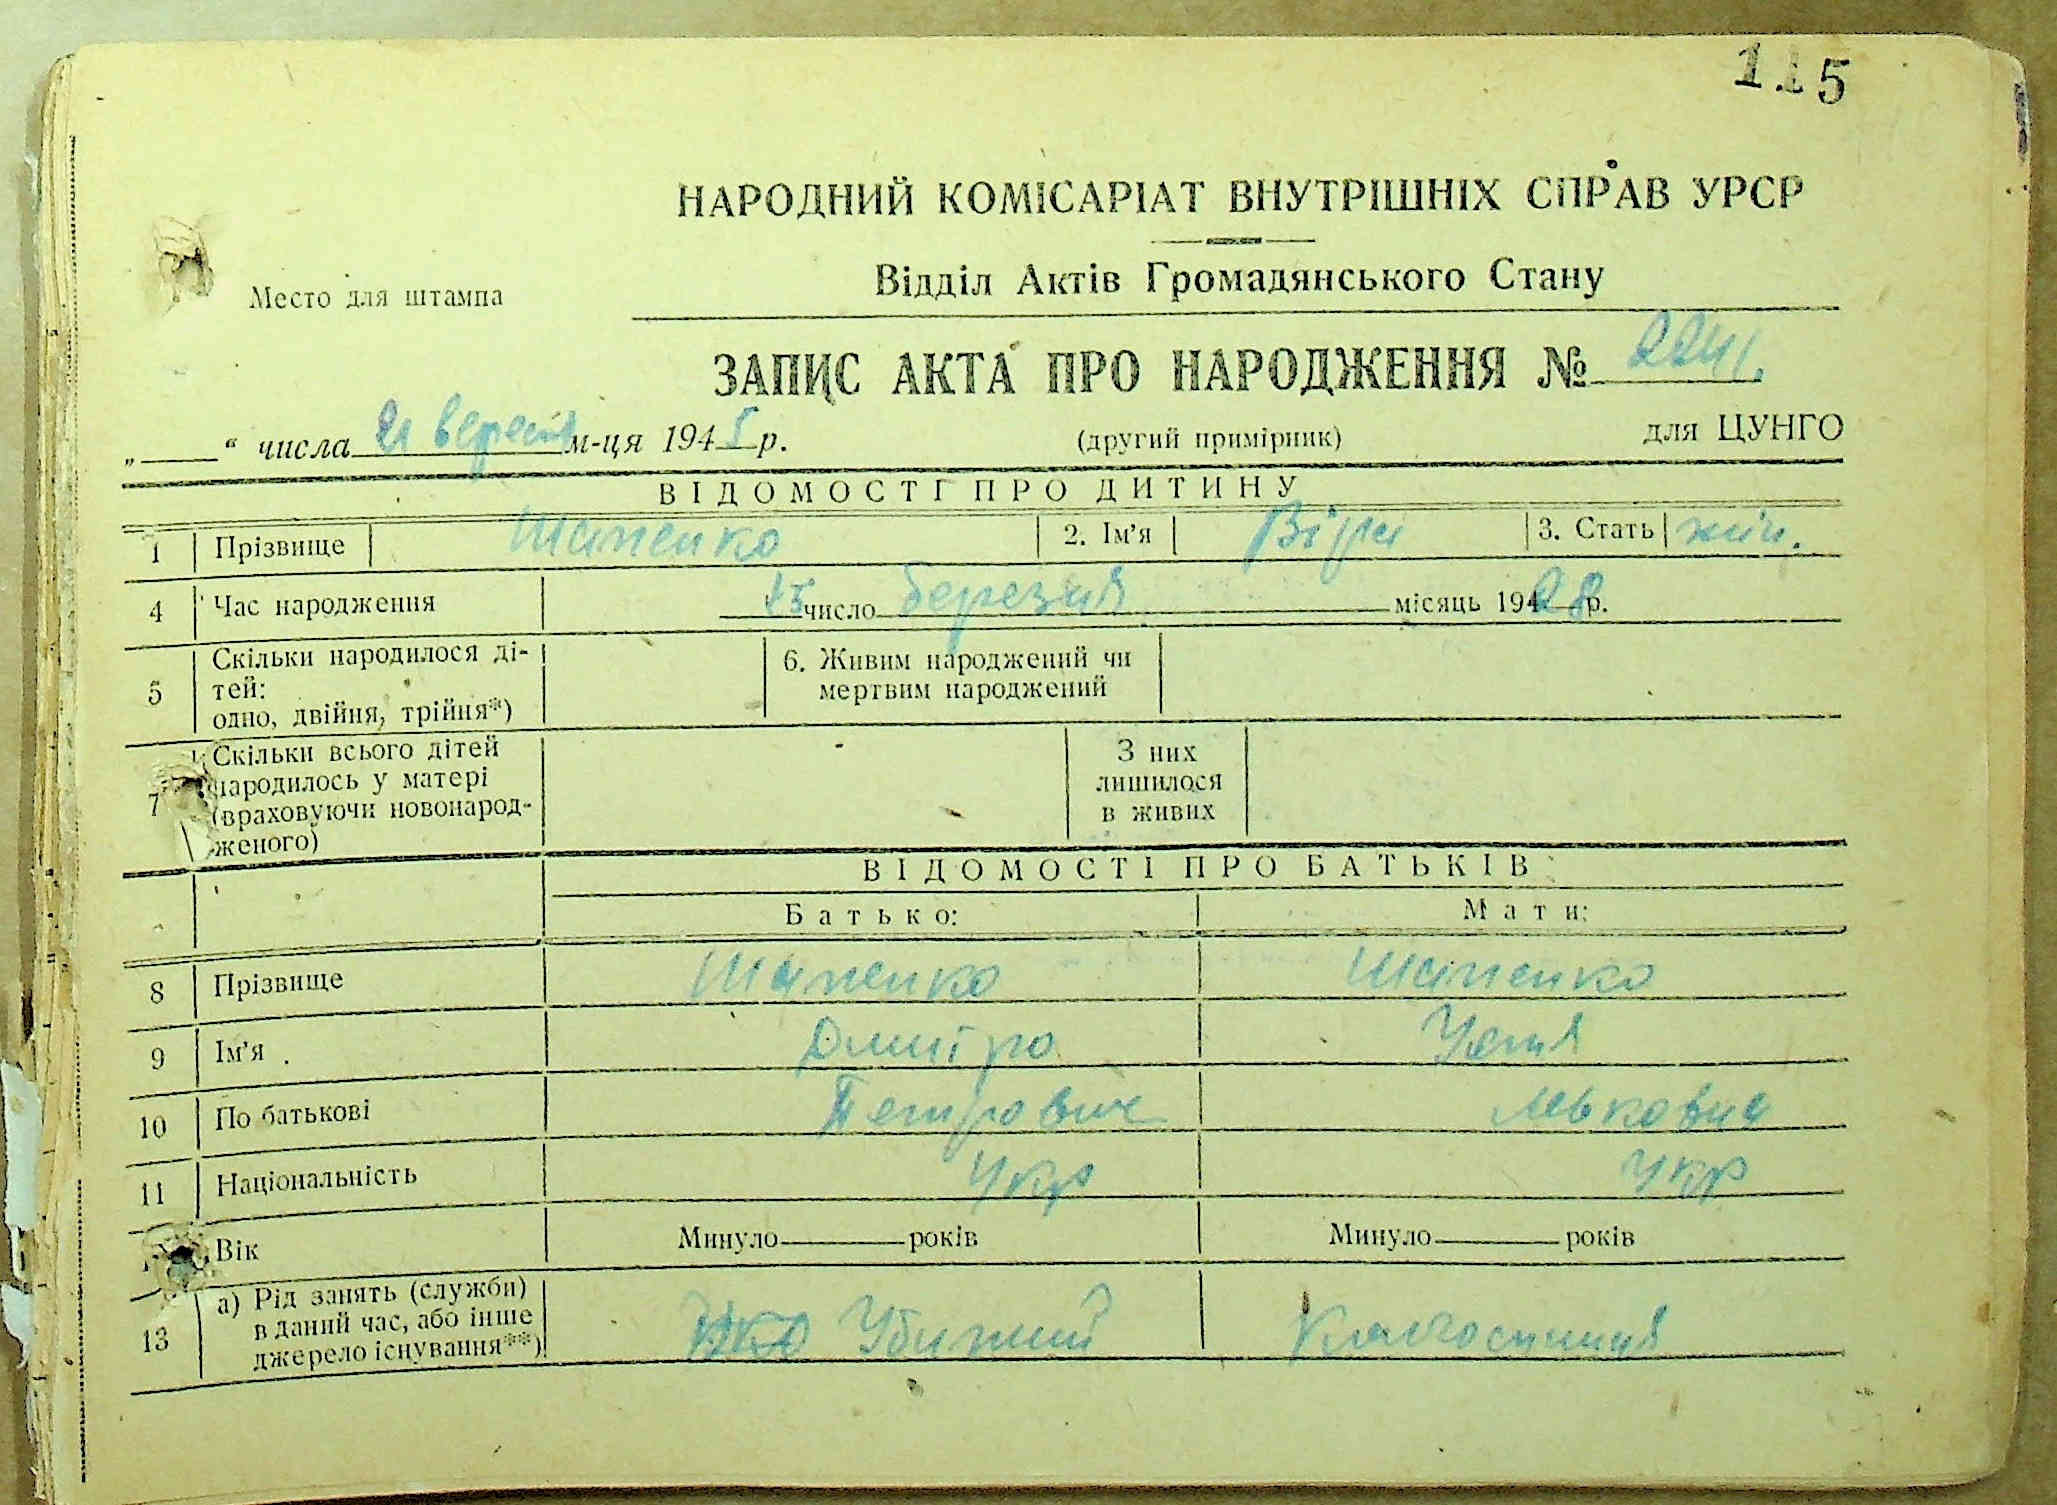 115
НАРОДНИЙ КОМІСАРІАТ ВНУТРІШНІХ СПРАВ УРСР
Место для штампа
Відділ Актів Громадянського Стану
ЗАПИС АКТА ПРО НАРОДЖЕННЯ №
„ “ числа 21 вересня м-ця 1945 р. (другий примірник) для ЦУНГО
ВІДОМОСТІ ПРО ДИТИНУ
1 Прізвище Шапенко 2. Ім’я Віра 3. Стать жін.
4 Час народження 15 число березня місяць 1928 р.
5 Скільки народилося ді-
тей:
одно, двійня, трійня*)
6. Живим народжений чи
мертвим народжений
7 Скільки всього дітей
народилось у матері
(враховуючи новонарод-
женого)
З них
лишилося
в живих
ВІДОМОСТІ ПРО БАТЬКІВ
Батько: Мати:
8 Прізвище Шапенко Шапенко
9 Ім’я Дмитро
10 По батькові Петрович
11 Національність Укр Укр
Вік Минуло років Минуло років
13 а) Рід занять (служби)
в даний час, або інше
джерело існування**)
Убитий Колгоспниця